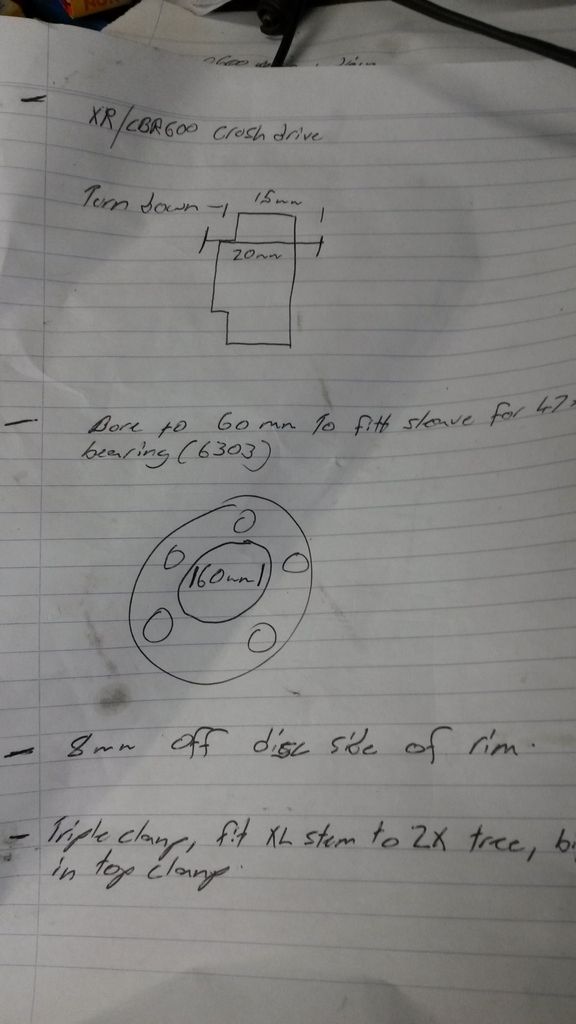 - XR/CBR600 Crush drive
Turn down 15mm
20mm
- Bore to 60mm To fitt sleave for 47
bearing (6303)
60mm
- 8mm off disc side of rim.
- Triple clamp, fit XL stem to ZX tree,
in top clamp.